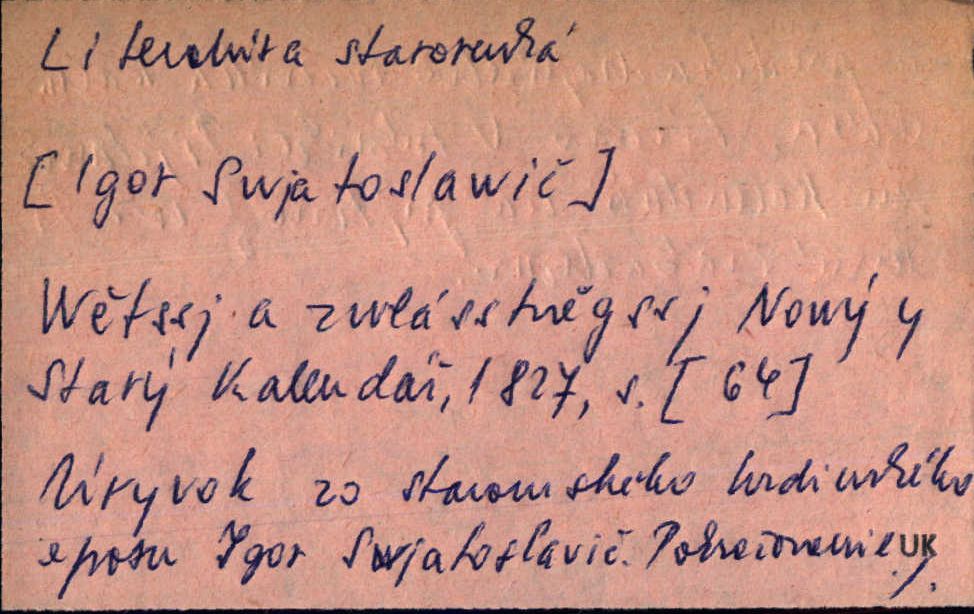 Literatúra staroruská
[Igor Swjatoslawič]
Wětssj a zwlásstněgssj Nowý y
Starý Kalendář, 1827, s. [64]
Úryvok zo staroruského hrdinského
eposu Igor Swjatoslavič. Pokračovanie.
UK